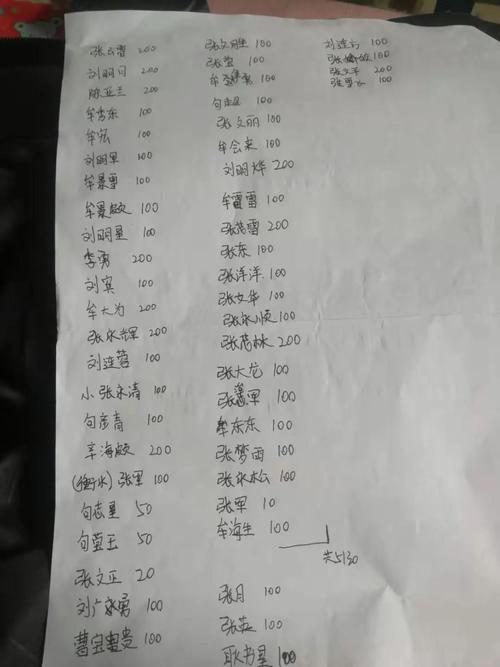 张云雷 200
刘明同 200
陈亚兰 200
牟秀东 100
牟宏 100
刘明军 100
牟景雷 100
牟景波 100
刘明星 100
李勇 200
刘宾 100
牟大为 200
张永辉 200
刘连营 100
小张永清 100
句彦青 100
辛海波 200
(衡水)张军 100
句志星 50
句莹玉 50
张文正 20
刘广永勇 100
曹宝贵 100
张文胜 100
张莹 100
100
句 100
张文丽 100
牟会来 100
刘明烨 200
牟雷雷 100
张茂雷 200
张东 100
张洋洋 100
张文华 100
张永顺 100
张茂林 200
张大龙 100
张军 100
牟东东 100
张梦雨 100
张永松 100
张军 10
牟海生 100
共5130
张月 100
张英 100
耿书星 100
刘连方 100
张 100
张文平 200
张 100